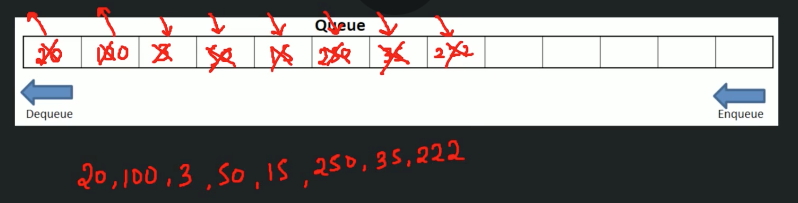 Queue
20 100 3 50 15 250 35 222
Dequeue
Enqueue
20, 100, 3, 50, 15, 250, 35, 222